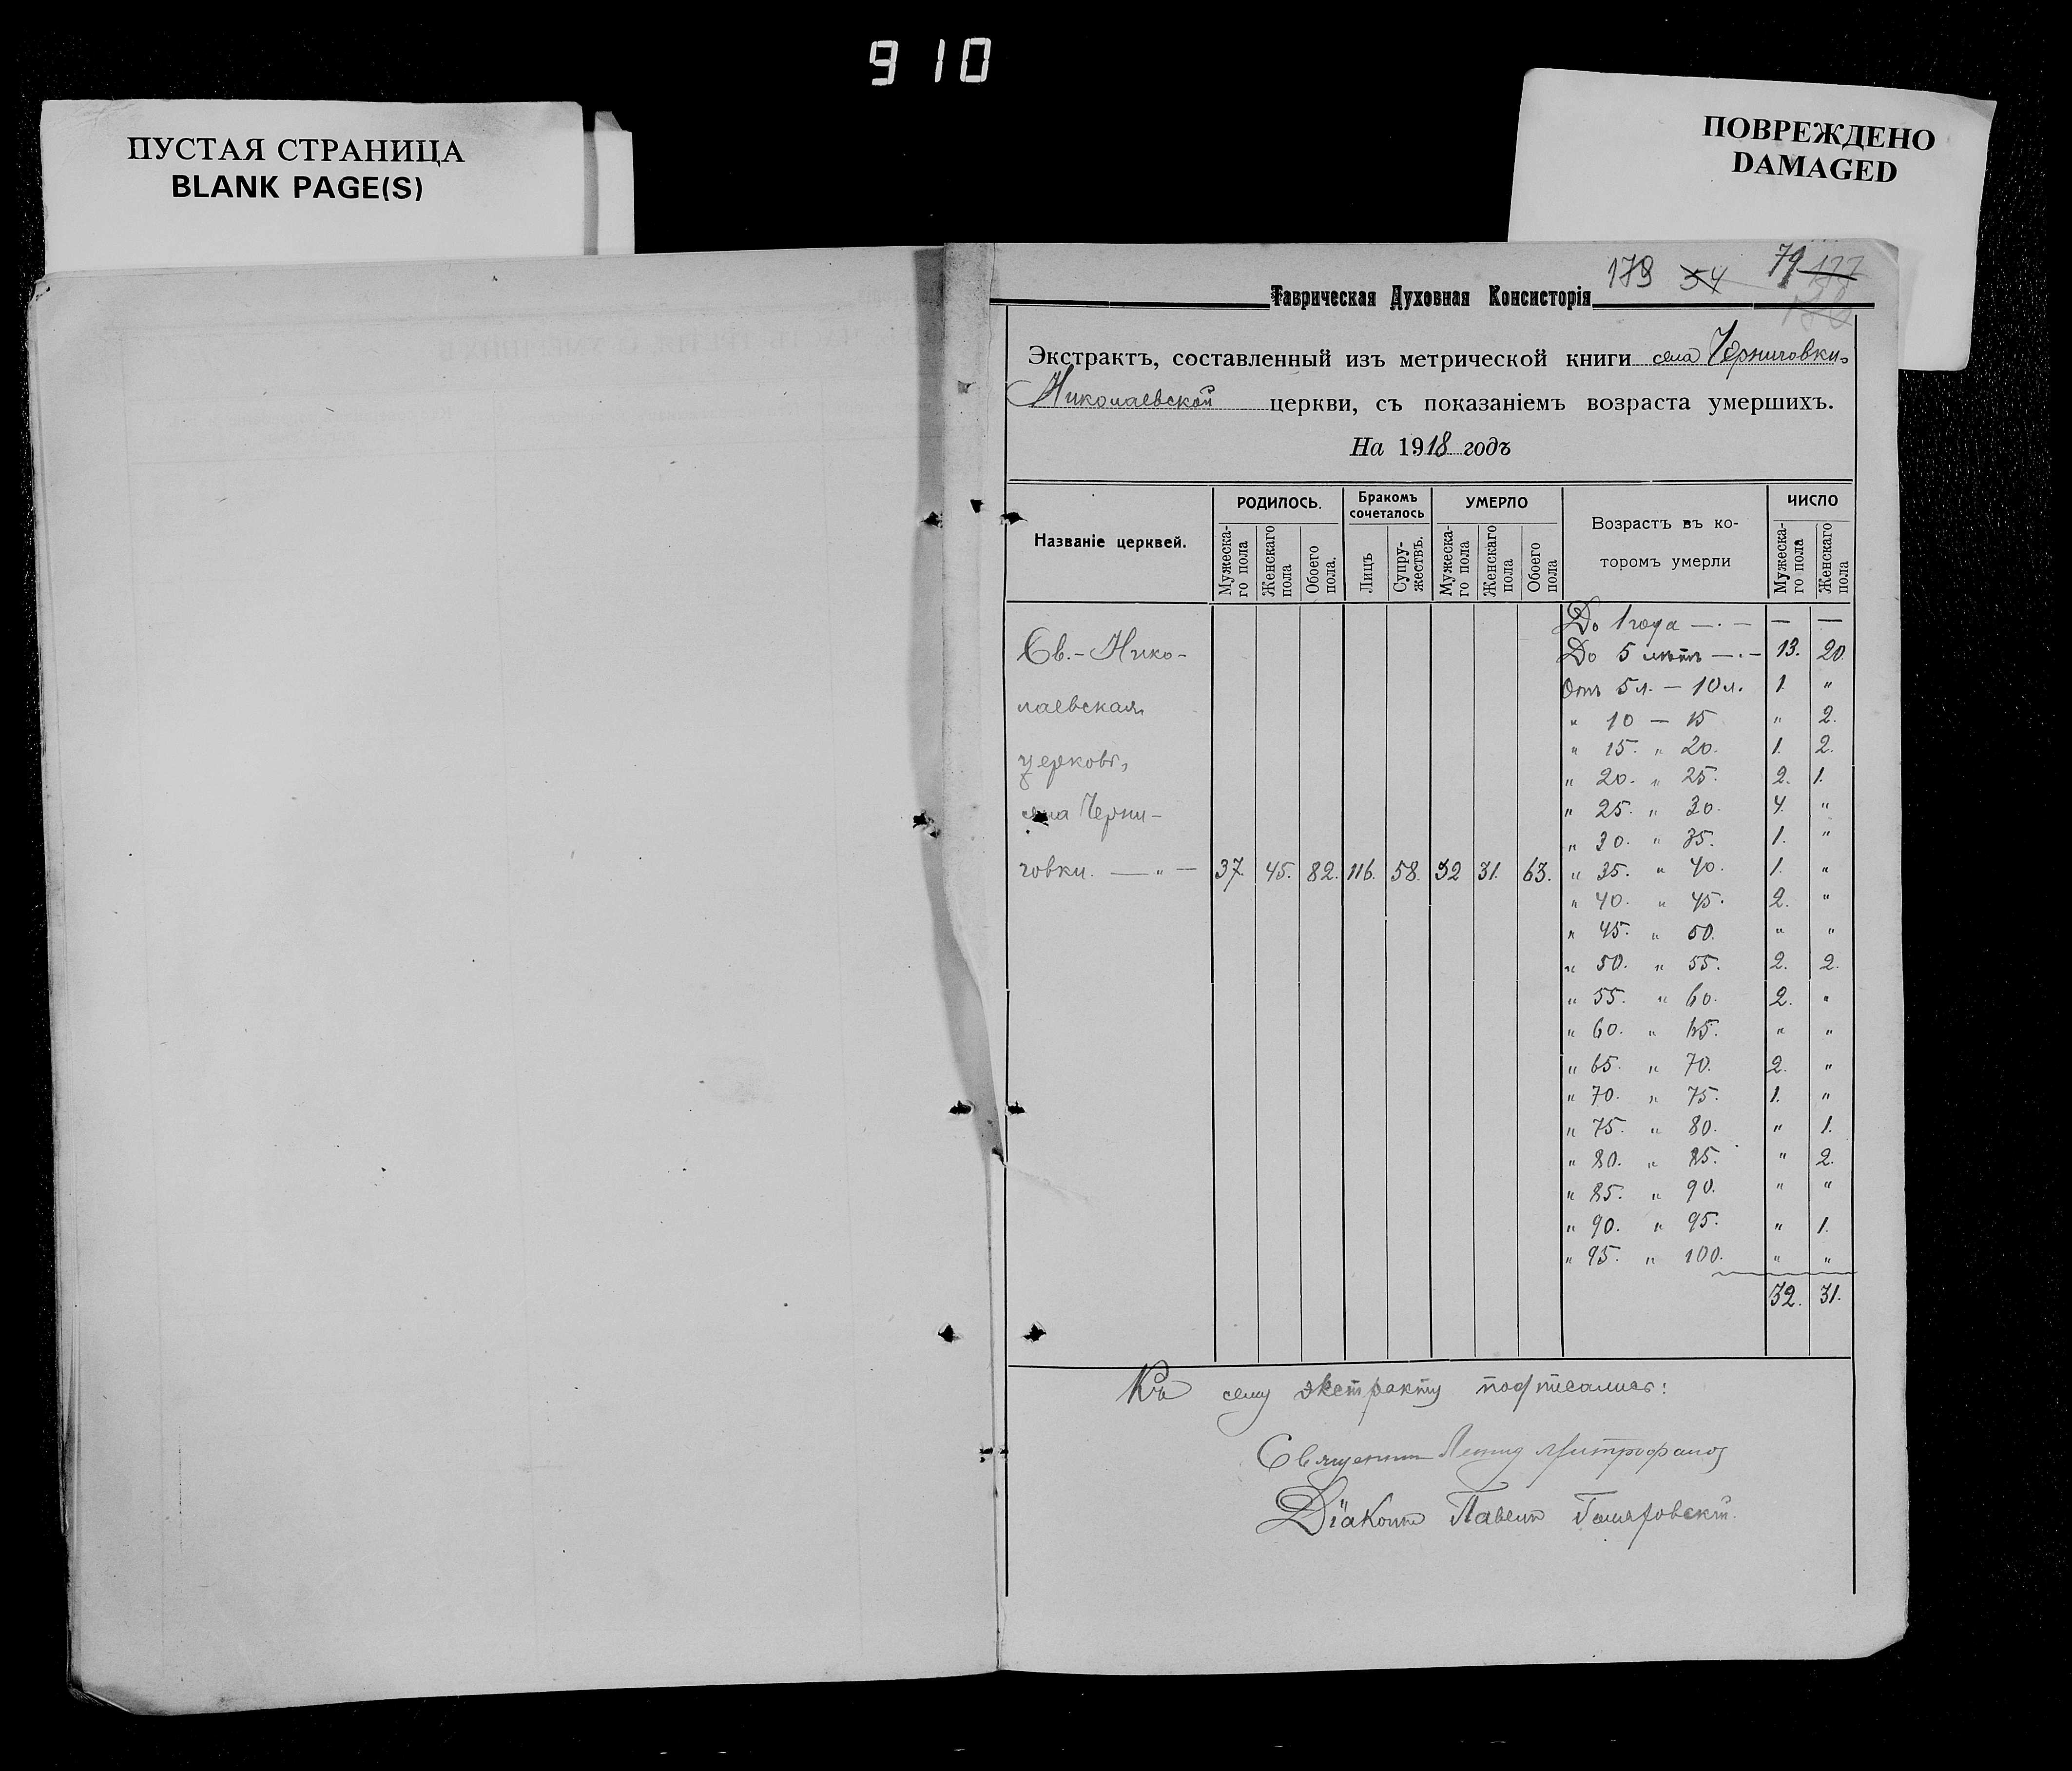 910
ПУСТАЯ СТРАНИЦА
BLANK PAGE(S)
ПОВРЕЖДЕНО
DAMAGED
179 54 79 177
Таврическая Духовная Консисторія
Экстрактъ, составленный изъ метрической книги села Черниговки,
Николаевской церкви, съ показаніемъ возраста умершихъ.
На 1918 годъ
Названіе церквей.
РОДИЛОСЬ.
Мужеска-
го пола
Женскаго
пола
Обоего
пола.
Бракомъ
сочеталось
Лицъ
Супру-
жествъ.
УМЕРЛО
Мужеска-
го пола
Женскаго
пола
Обоего
пола
Возрастъ въ ко-
торомъ умерли
ЧИСЛО
Мужеска-
го пола
Женскаго
пола
Св.-Нико-
лаевская
церковь,
села Черни-
говки. — " — 37. 45. 82. 116. 58. 32 31. 63.
До 1 года — . — — —
До 5 лѣтъ — . — 13. 20.
Отъ 5 л. — 10 л. 1. "
" 10 — 15 " 2.
" 15. " 20. 1. 2.
" 20. " 25. 2. 1.
" 25. " 30. 4. "
" 30. " 35. 1. "
" 35. " 40. 1. "
" 40. " 45. 2. "
" 45. " 50. " "
" 50. " 55. 2. 2.
" 55. " 60. 2. "
" 60. " 65. " "
" 65. " 70. 2. "
" 70. " 75. 1. "
" 75. " 80. " 1.
" 80. " 85. " 2.
" 85. " 90. " "
" 90. " 95. " 1.
" 95. " 100. " "
32. 31.
Къ сему экстракту подписались:
Священникъ Леонид Митрофанов
Діаконъ Павелъ